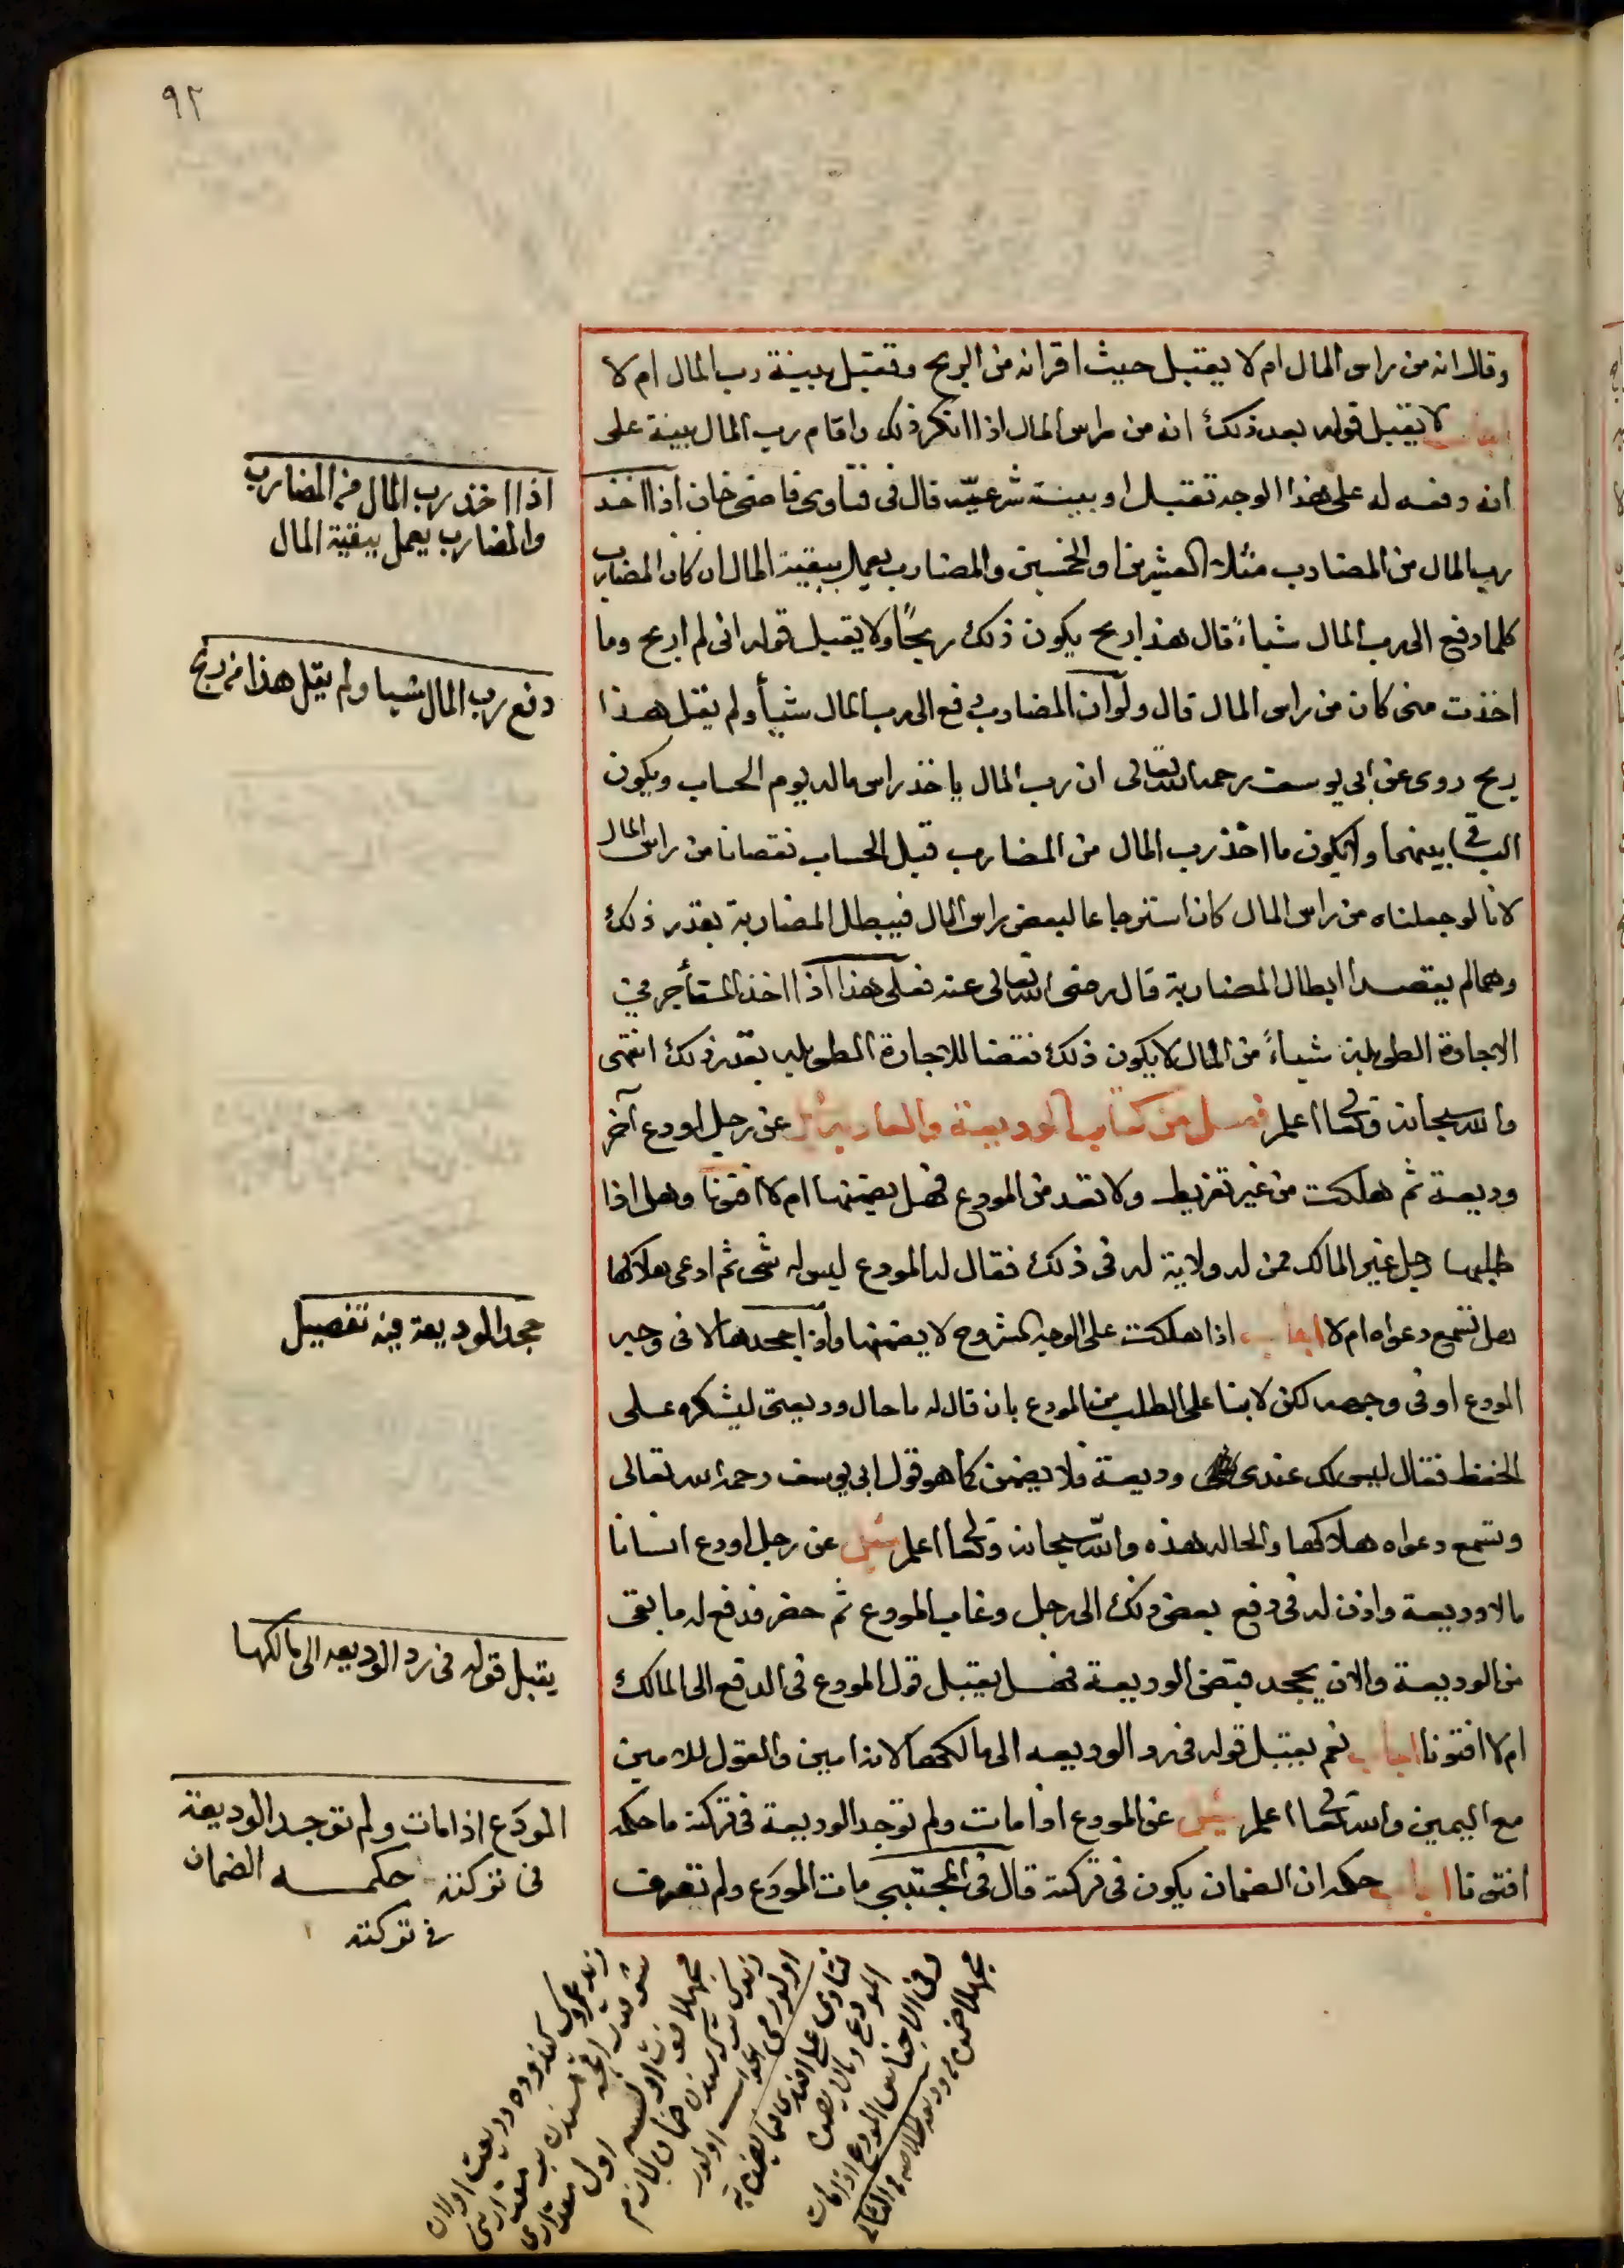 ٩٢
وقال انه من راس المال ام لا يقبل حيث اقر انه من الربح وتقبل بينة رب المال ام لا
اجاب لا يقبل قوله بعد ذلك انه من راس المال اذا انكر ذلك واقام رب المال بينة على
انه دفعه له على هذا الوجه تقبل او بينة شرعية قال فى فتاوى قاضى خان اذا اخذ
رب المال من المضارب مثلا العشرين او الخمسين والمضارب يعمل ببقية المال ان كان المضارب
كلما دفع الى رب المال شياءً قال هذا ربح يكون ذلك ربحًا ولا يقبل قوله انى لم اربح وما
اخذت منى كان من راس المال قال ولو ان المضارب دفع الى رب المال شيأ ولم يقل هذا
ربح روى عن ابى يوسف رحمه الله تعالى ان رب المال ياخذ راس ماله يوم الحساب ويكون
الباقى بينهما ولا يكون ما اخذ رب المال من المضارب قبل الحساب نقصانا من راس المال
لانا لو جعلناه من راس المال كان استرجاعا لبعض راس المال فيبطل المضاربة بقدر ذلك
وهما لم يقصدا ابطال المضاربة قال رضى الله تعالى عنه فعلى هذا اذا اخذ المستأجر فى
الاجارة الطويلة شياءً من المال لا يكون ذلك نقضا للاجارة الطويله بقدر ذلك انتهى
والله سبحانه وتعالى اعلم فصل من كتاب الوديعة والعارية سئل عن رجل اودع آخر
وديعة ثم هلكت من غير تفريط ولا تعد من المودع فهل يضمنها ام لا افتونا وهل اذا
طلبها رجل غير المالك ممن له ولاية له فى ذلك فقال له المودع ليس له شى ثم ادعى هلاكها
هل تسمع دعواه ام لا اجاب اذا هلكت على الوجه المشروح لا يضمنها واذا جحدها لا فى وجه
المودع او فى وجهه لكن لا بنا على الطلب من المودع بان قال له ما حال وديعتى ليشكره على
الحفظ فقال ليس لك عندى وديعة فلا يضمن كما هو قول ابى يوسف رحمه الله تعالى
وتسمع دعواه هلاكها والحاله هذه والله سبحانه وتعالى اعلم سئل عن رجل اودع انسانا
مالا وديعة واذن له فى دفع بعض ذلك الى رجل وغاب المودع ثم حضر فدفع له ما بقى
من الوديعة والان يجحد قبض الوديعة فهل يقبل قول المودع فى الدفع الى المالك
ام لا افتونا اجاب نعم يقبل قوله فى رد الوديعه الى مالكها لانه امين والقول للامين
مع اليمين والله تعالى اعلم سئل عن المودع اذا مات ولم توجد الوديعة فى تركته ما حكمه
افتونا اجاب حكمه ان الضمان يكون فى تركته قال فى المجتبى مات المودَع ولم تعرف
اذا اخذ رب المال من المضارب
والمضارب يعمل ببقية المال
دفع رب المال شيا ولم يقل هذا من ربح
جحد الوديعة فيه تفصيل
يقبل قوله فى رد الوديعه الى مالكها
المودَع اذا مات ولم توجد الوديعة
فى تركته حكمه الضمان
فى تركته
وفى الاجناس المودع اذا مات
مجهلا ضمن
المودع
فتاوى على افندى
اولور مى الجواب اولور
زيدك تركه سندن ضمان لازم
مجهلا فوت اولسه
زيد عمروك
وديعت اولان